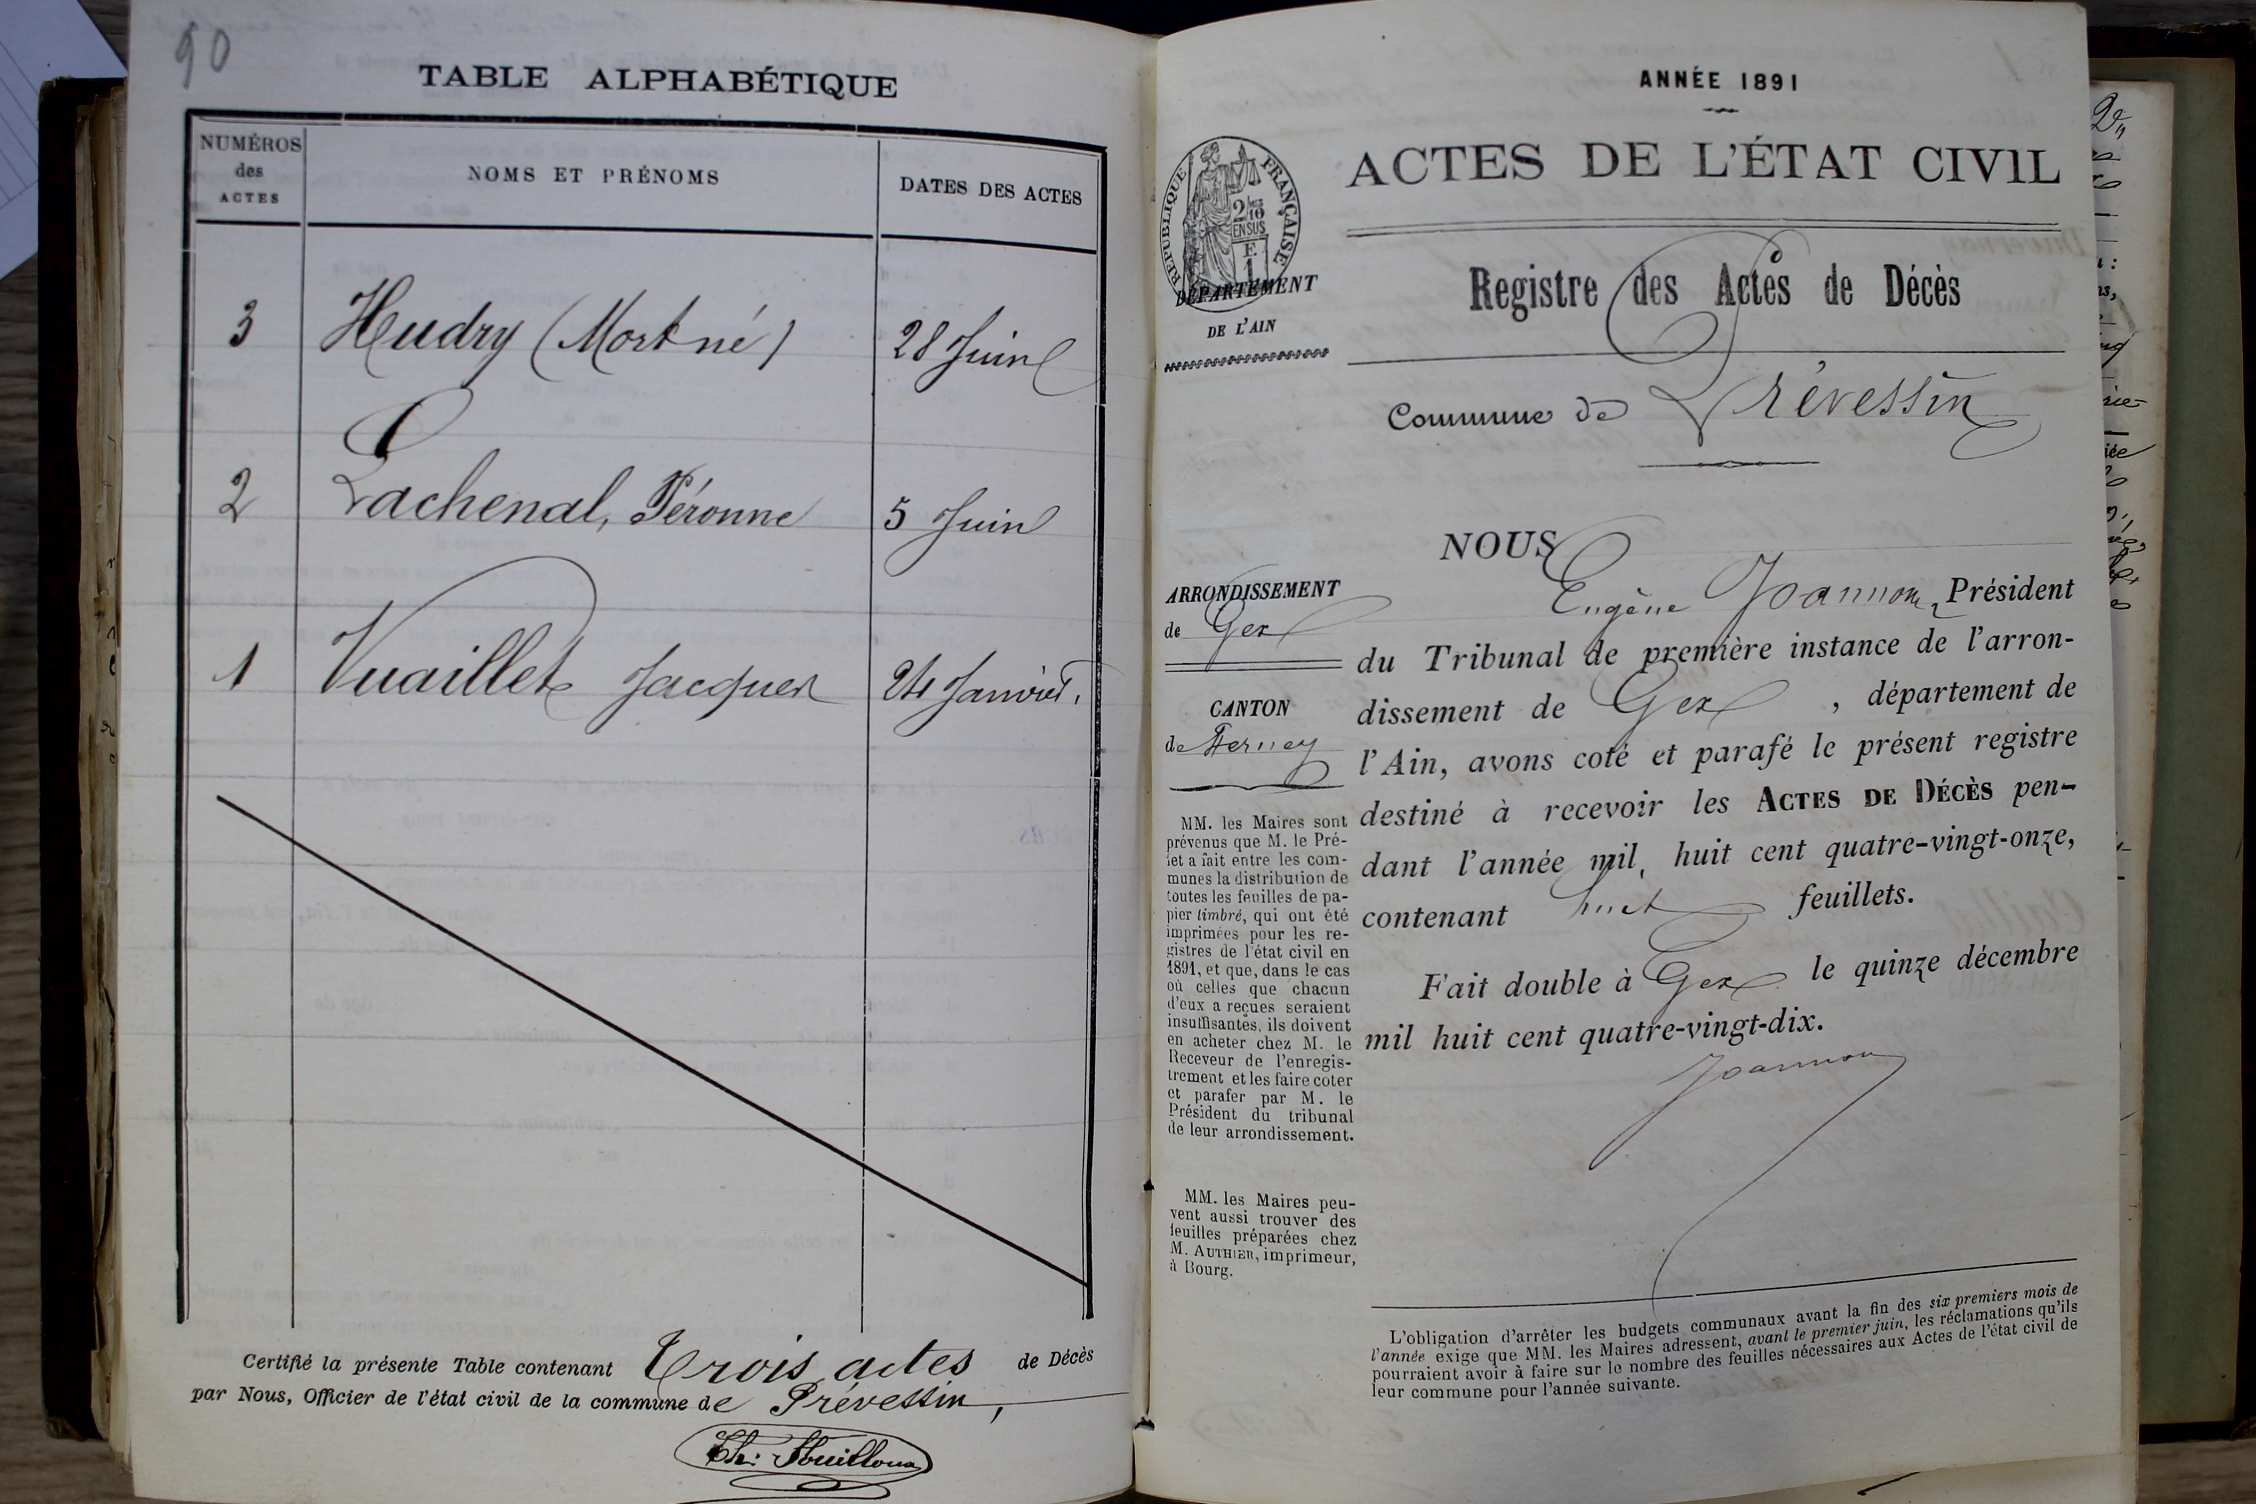 90
TABLE ALPHABÉTIQUE
NUMÉROS
des
ACTES
NOMS ET PRÉNOMS
DATES DES ACTES
3 Hudry (Mort né) 28 Juin
2 Lachenal, Péronne 5 Juin
1 Vuaillet Jacques 24 Janvier.
Certifié la présente Table contenant Trois actes de Décès
par Nous, Officier de l'état civil de la commune de Prévessin,
ANNÉE 1891
ACTES DE L'ÉTAT CIVIL
RÉPUBLIQUE FRANÇAISE
2/10
EN SUS
E
1
DÉPARTEMENT
DE L'AIN
Registre des Actes de Décès
Commune de Prévessin
ARRONDISSEMENT
de Gex
CANTON
de Ferney
MM. les Maires sont
prévenus que M. le Pré-
fet a fait entre les com-
munes la distribution de
toutes les feuilles de pa-
pier timbré, qui ont été
imprimées pour les re-
gistres de l'état civil en
1891, et que, dans le cas
où celles que chacun
d'eux a reçues seraient
insuffisantes, ils doivent
en acheter chez M. le
Receveur de l'enregis-
trement et les faire coter
et parafer par M. le
Président du tribunal
de leur arrondissement.
MM. les Maires peu-
vent aussi trouver des
feuilles préparées chez
M. AUTHIER, imprimeur,
à Bourg.
NOUS
Eugène Joannon, Président
du Tribunal de première instance de l'arron-
dissement de Gex, département de
l'Ain, avons coté et parafé le présent registre
destiné à recevoir les ACTES DE DÉCÈS pen-
dant l'année mil huit cent quatre-vingt-onze,
contenant huit feuillets.
Fait double à Gex le quinze décembre
mil huit cent quatre-vingt-dix.
Joannon
L'obligation d'arrêter les budgets communaux avant la fin des six premiers mois de
l'année exige que MM. les Maires adressent, avant le premier juin, les réclamations qu'ils
pourraient avoir à faire sur le nombre des feuilles nécessaires aux Actes de l'état civil de
leur commune pour l'année suivante.